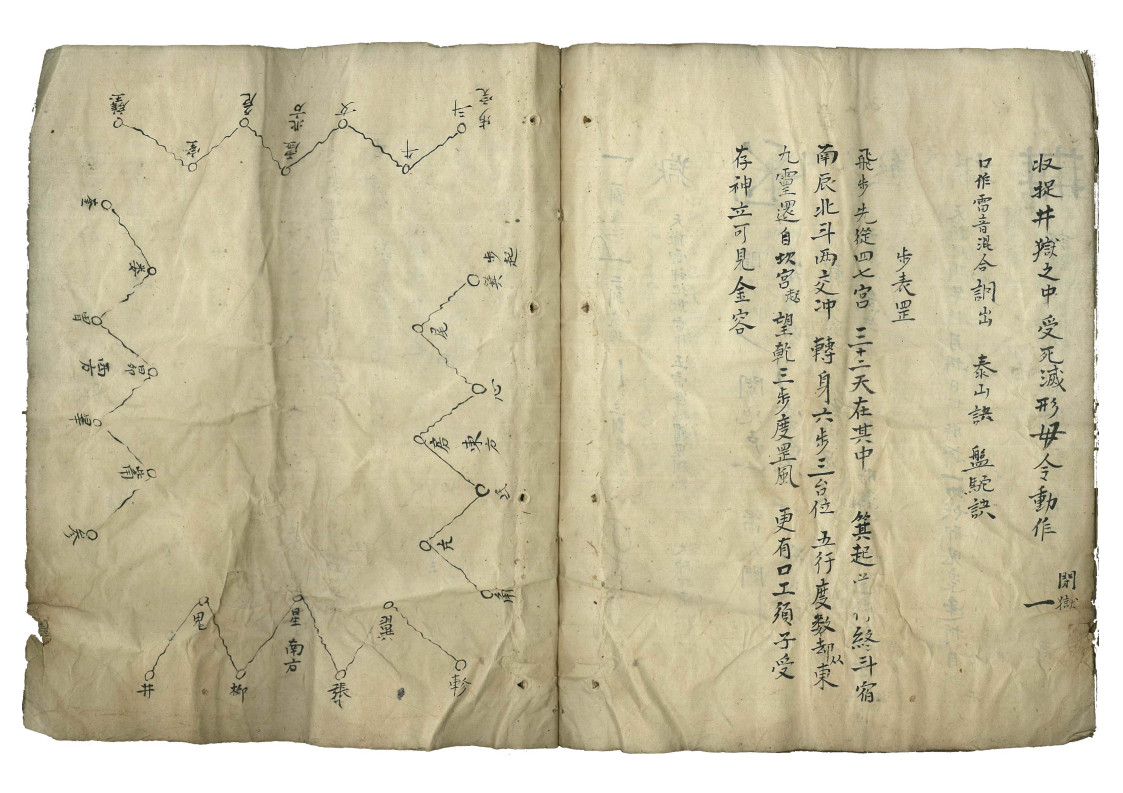 収捉井嶽之中 受死滅形毋令動作
閗嶽
一
口作雷音混合訶出 泰山訣 盤駝訣
步表罡
飛步先從四七宮 三十二天在其中 箕起 終斗宿
南辰北斗两交冲 轉身六步三台位 五行度数却以東
九靈還自坎宮起 望乾三步度罡風 更有口工須子受
存神立可見金容
步完
斗
牛
女
北方
虚
危
室
壁
步起
箕
尾
心
房
東方
氐
亢
角
奎
婁
胃
昴
西方
畢
觜
參
軫
翌
張
星
南方
柳
鬼
井